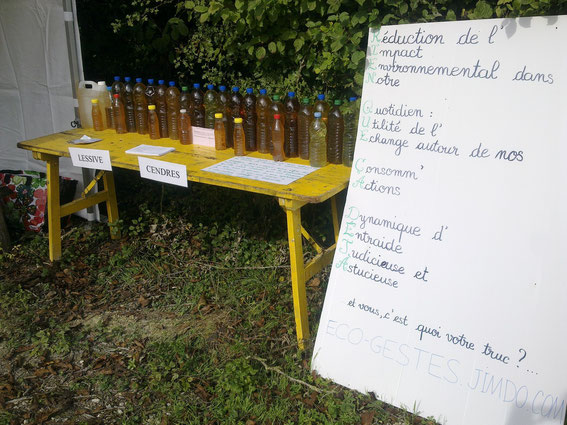 LESSIVE
CENDRES
Réduction de l'
Impact
Environnemental dans
Notre
Quotidien :
Utilité de l'
Echange autour de nos
Consomm'
Actions
Dynamique d'
Entraide
Judicieuse et
Astucieuse
et vous, c'est quoi votre truc ?...
ECO-GESTES.JIMDO.COM